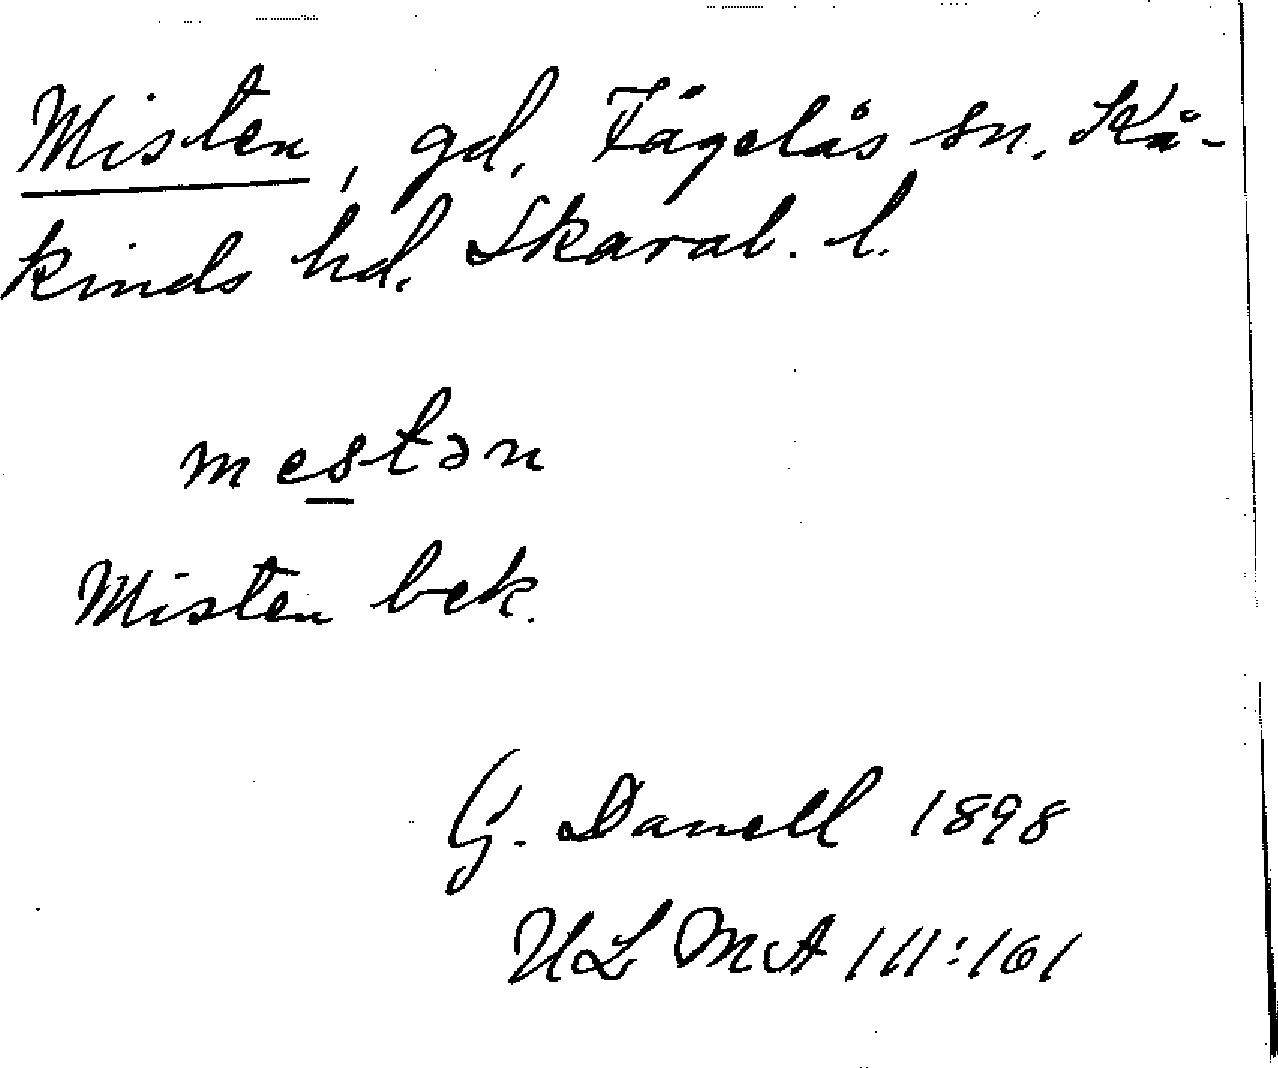 Misten, gd, Fägelås sn. Kå-
kinds hd. Skarab. l.
mestən
Misten bek.
G. Danell 1898
ULMA 111:101